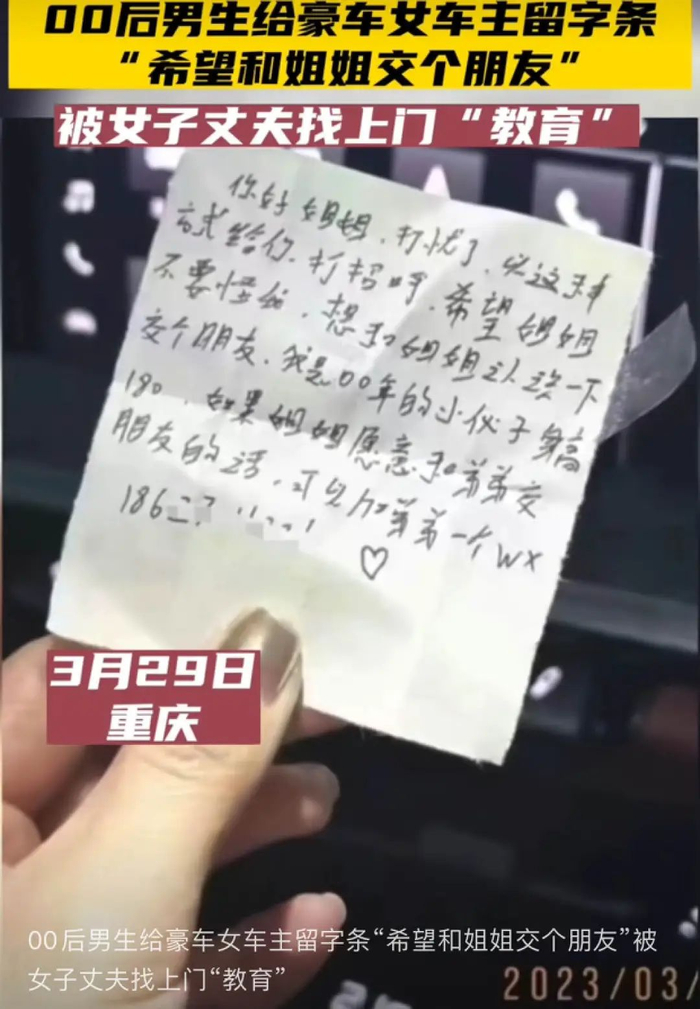 00后男生给豪车女车主留字条
“希望和姐姐交个朋友”
被女子丈夫找上门“教育”
你好姐姐,打扰了,以这种
方式给你打招呼,希望姐姐
不要怪罪,想和姐姐认识一下
交个朋友,我是00年的小伙子身高
180,如果姐姐愿意和弟弟交
朋友的话,可以加弟弟一个WX
186
3月29日
重庆
00后男生给豪车女车主留字条“希望和姐姐交个朋友”被
女子丈夫找上门“教育”
2023/03/